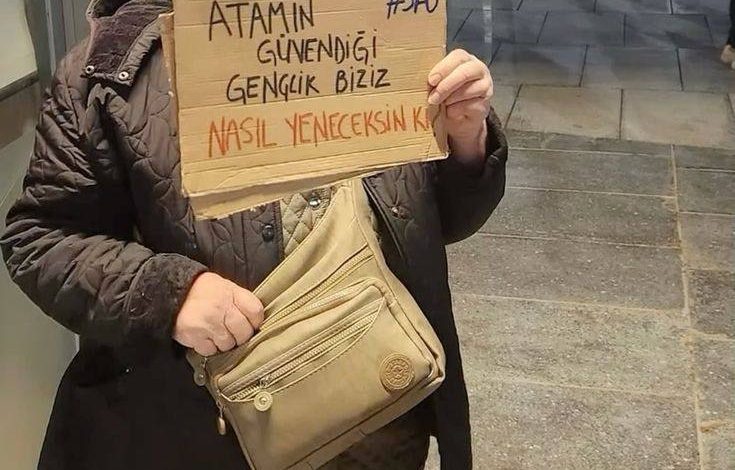 ATAMIN
GÜVENDİĞİ
GENÇLİK BİZİZ
NASIL YENECEKSİN Kİ